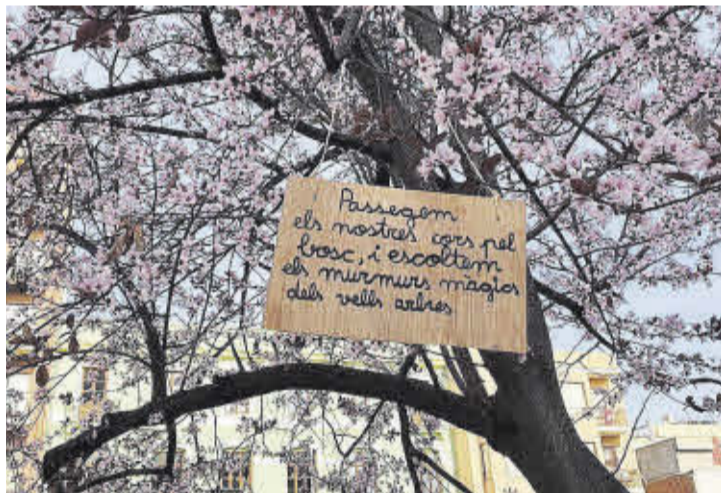 Passegem
els nostres cors pel
bosc, i escoltem
els murmurs màgics
dels vells arbres